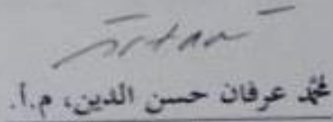 محمد عرفان حسن الدين، م.أ.